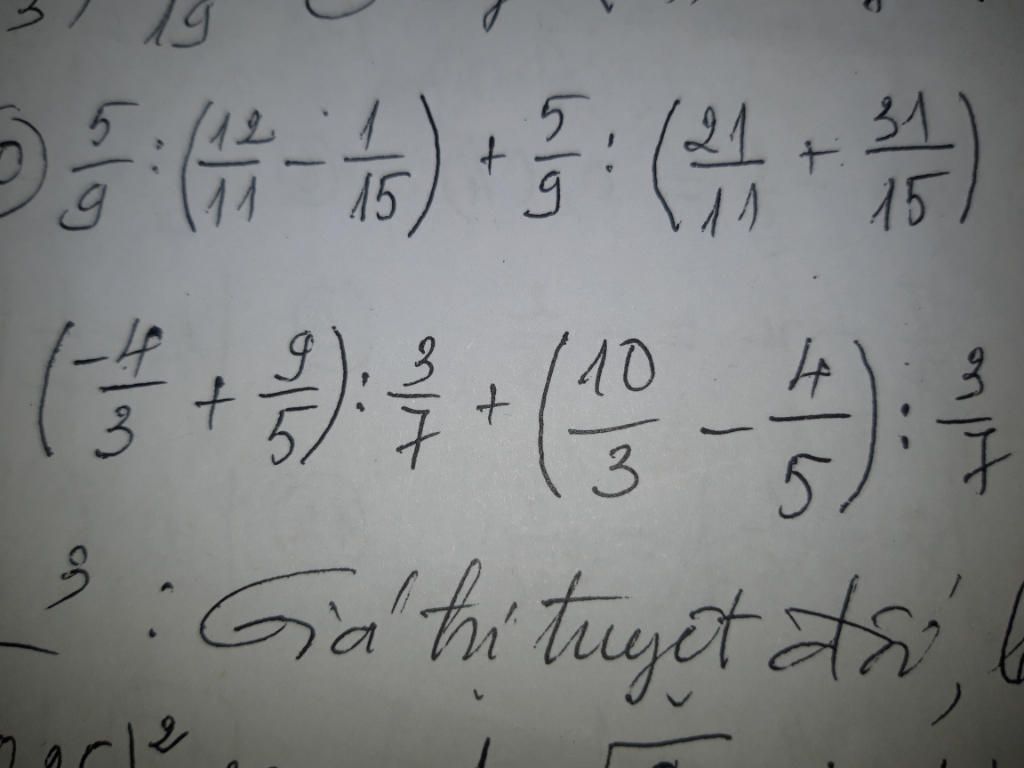 19
5/9 : (12/11 - 1/15) + 5/9 : (21/11 + 31/15)
(-4/3 + 9/5) : 3/7 + (10/3 - 4/5) : 3/7
3 : Giá trị tuyệt đối,